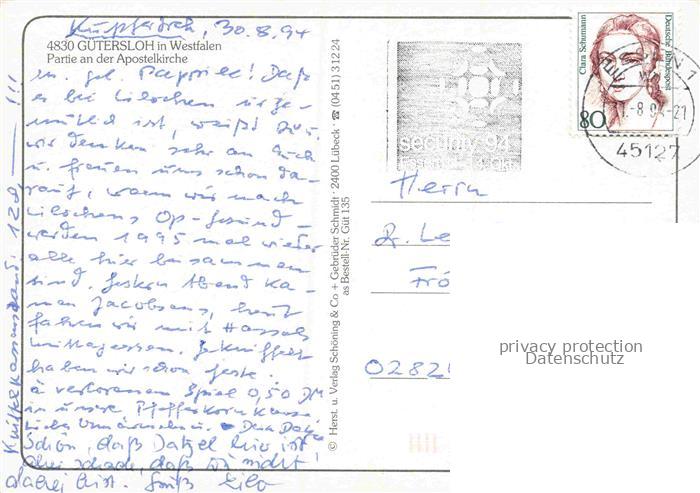 Kupferdreh, 30.8.94
4830 GÜTERSLOH in Westfalen
Partie an der Apostelkirche
m. gel. Daß
es bei Lilochen urge-
mütlich ist, weißt Du,
wir denken sehr an Euch
u. freuen uns schon da-
rauf, wenn wir nach
Lilochens Op-Gesund-
werden 1995 mal wieder
alle hier beisammen
sind. Gestern Abend ka-
men Jacobsens, heut
fahren wir mit
Mittagessen. Gekniffelt
haben wir schon feste.
à verlorenem Spiel 0,50 DM
in unsre Pfefferkorn Kasse
Liebe Umärmelung. Dein
Schön, daß hier ist!
schade, daß Du nicht
dabei bist. Gruß Lilo
Kniffelkassenstand: 129,— !!!
© Herst. u. Verlag Schöning & Co + Gebrüder Schmidt · 2400 Lübeck · ☎ (0451) 31224
as Bestell-Nr. Güt 135
security '94
Clara Schumann
Deutsche Bundespost
80
ESSEN 1
-8.94-21
45127
Herrn
R. Le
Frö
0282
privacy protection
Datenschutz